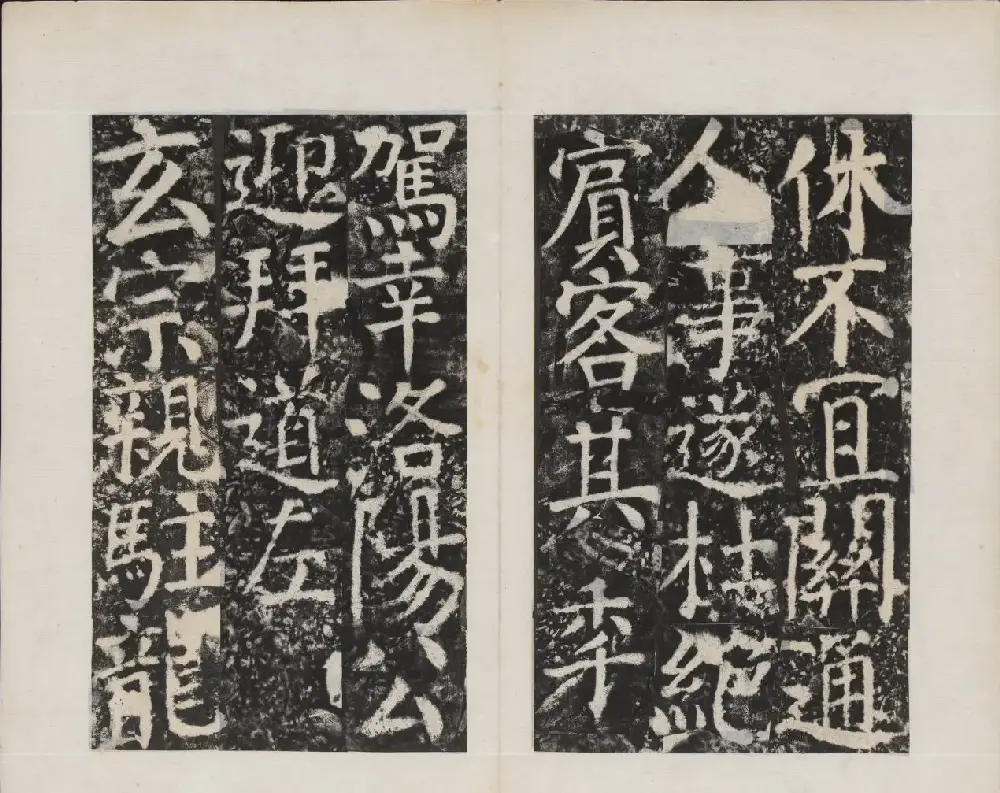 休不宜關通
人事遂杜絕
賓客其秊
駕幸洛陽公
迎拜道左
玄宗親駐龍